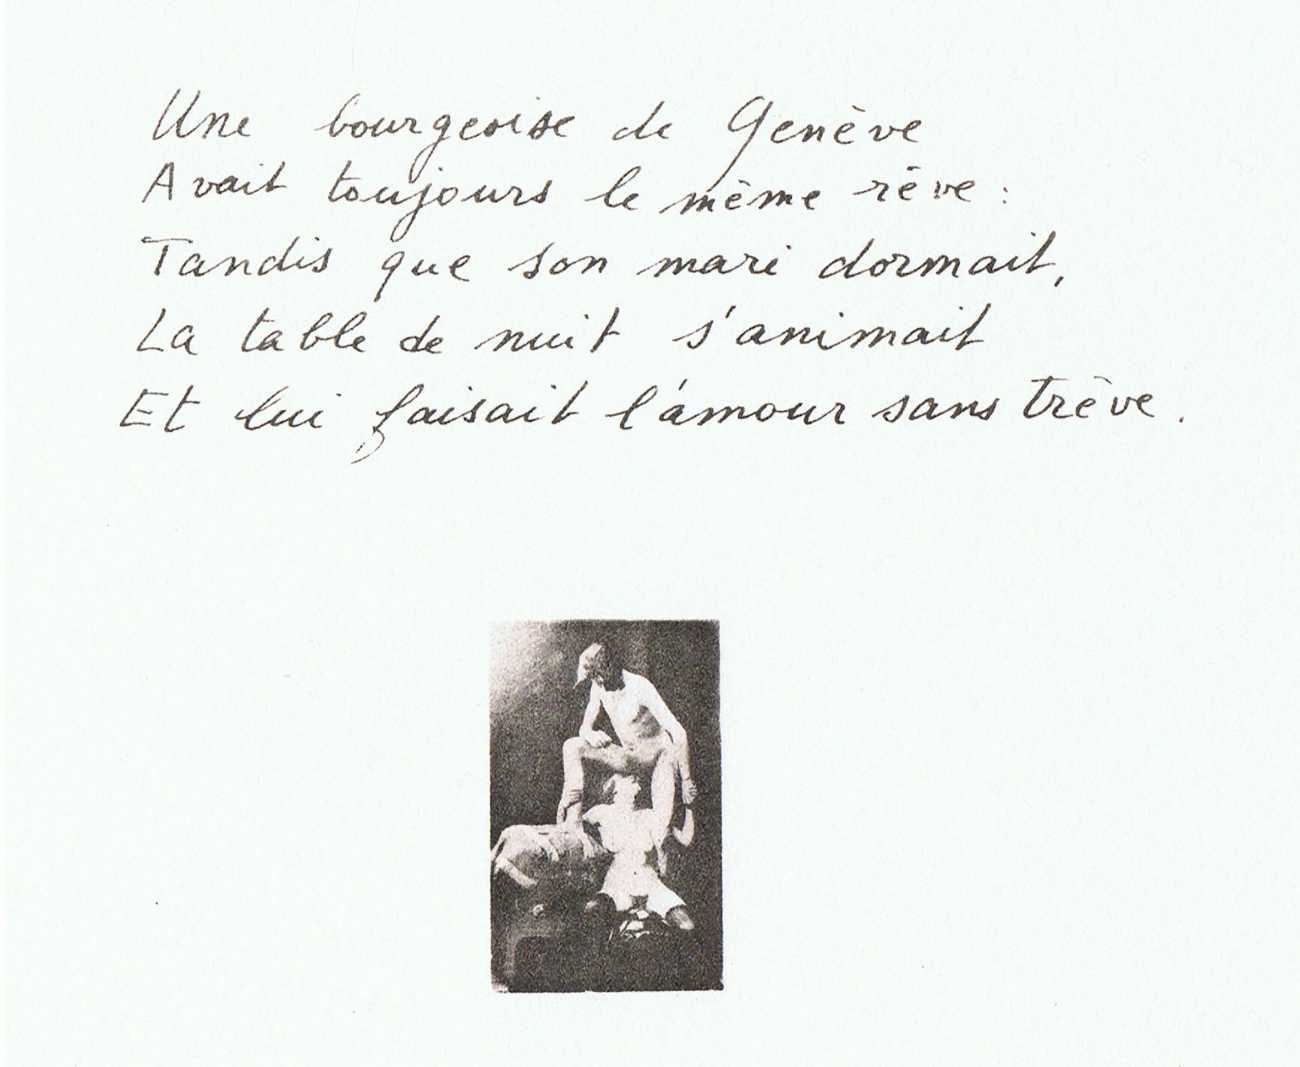 Une bourgeoise de Genève
Avait toujours le même rêve :
Tandis que son mari dormait,
La table de nuit s'animait
Et lui faisait l'amour sans trève.